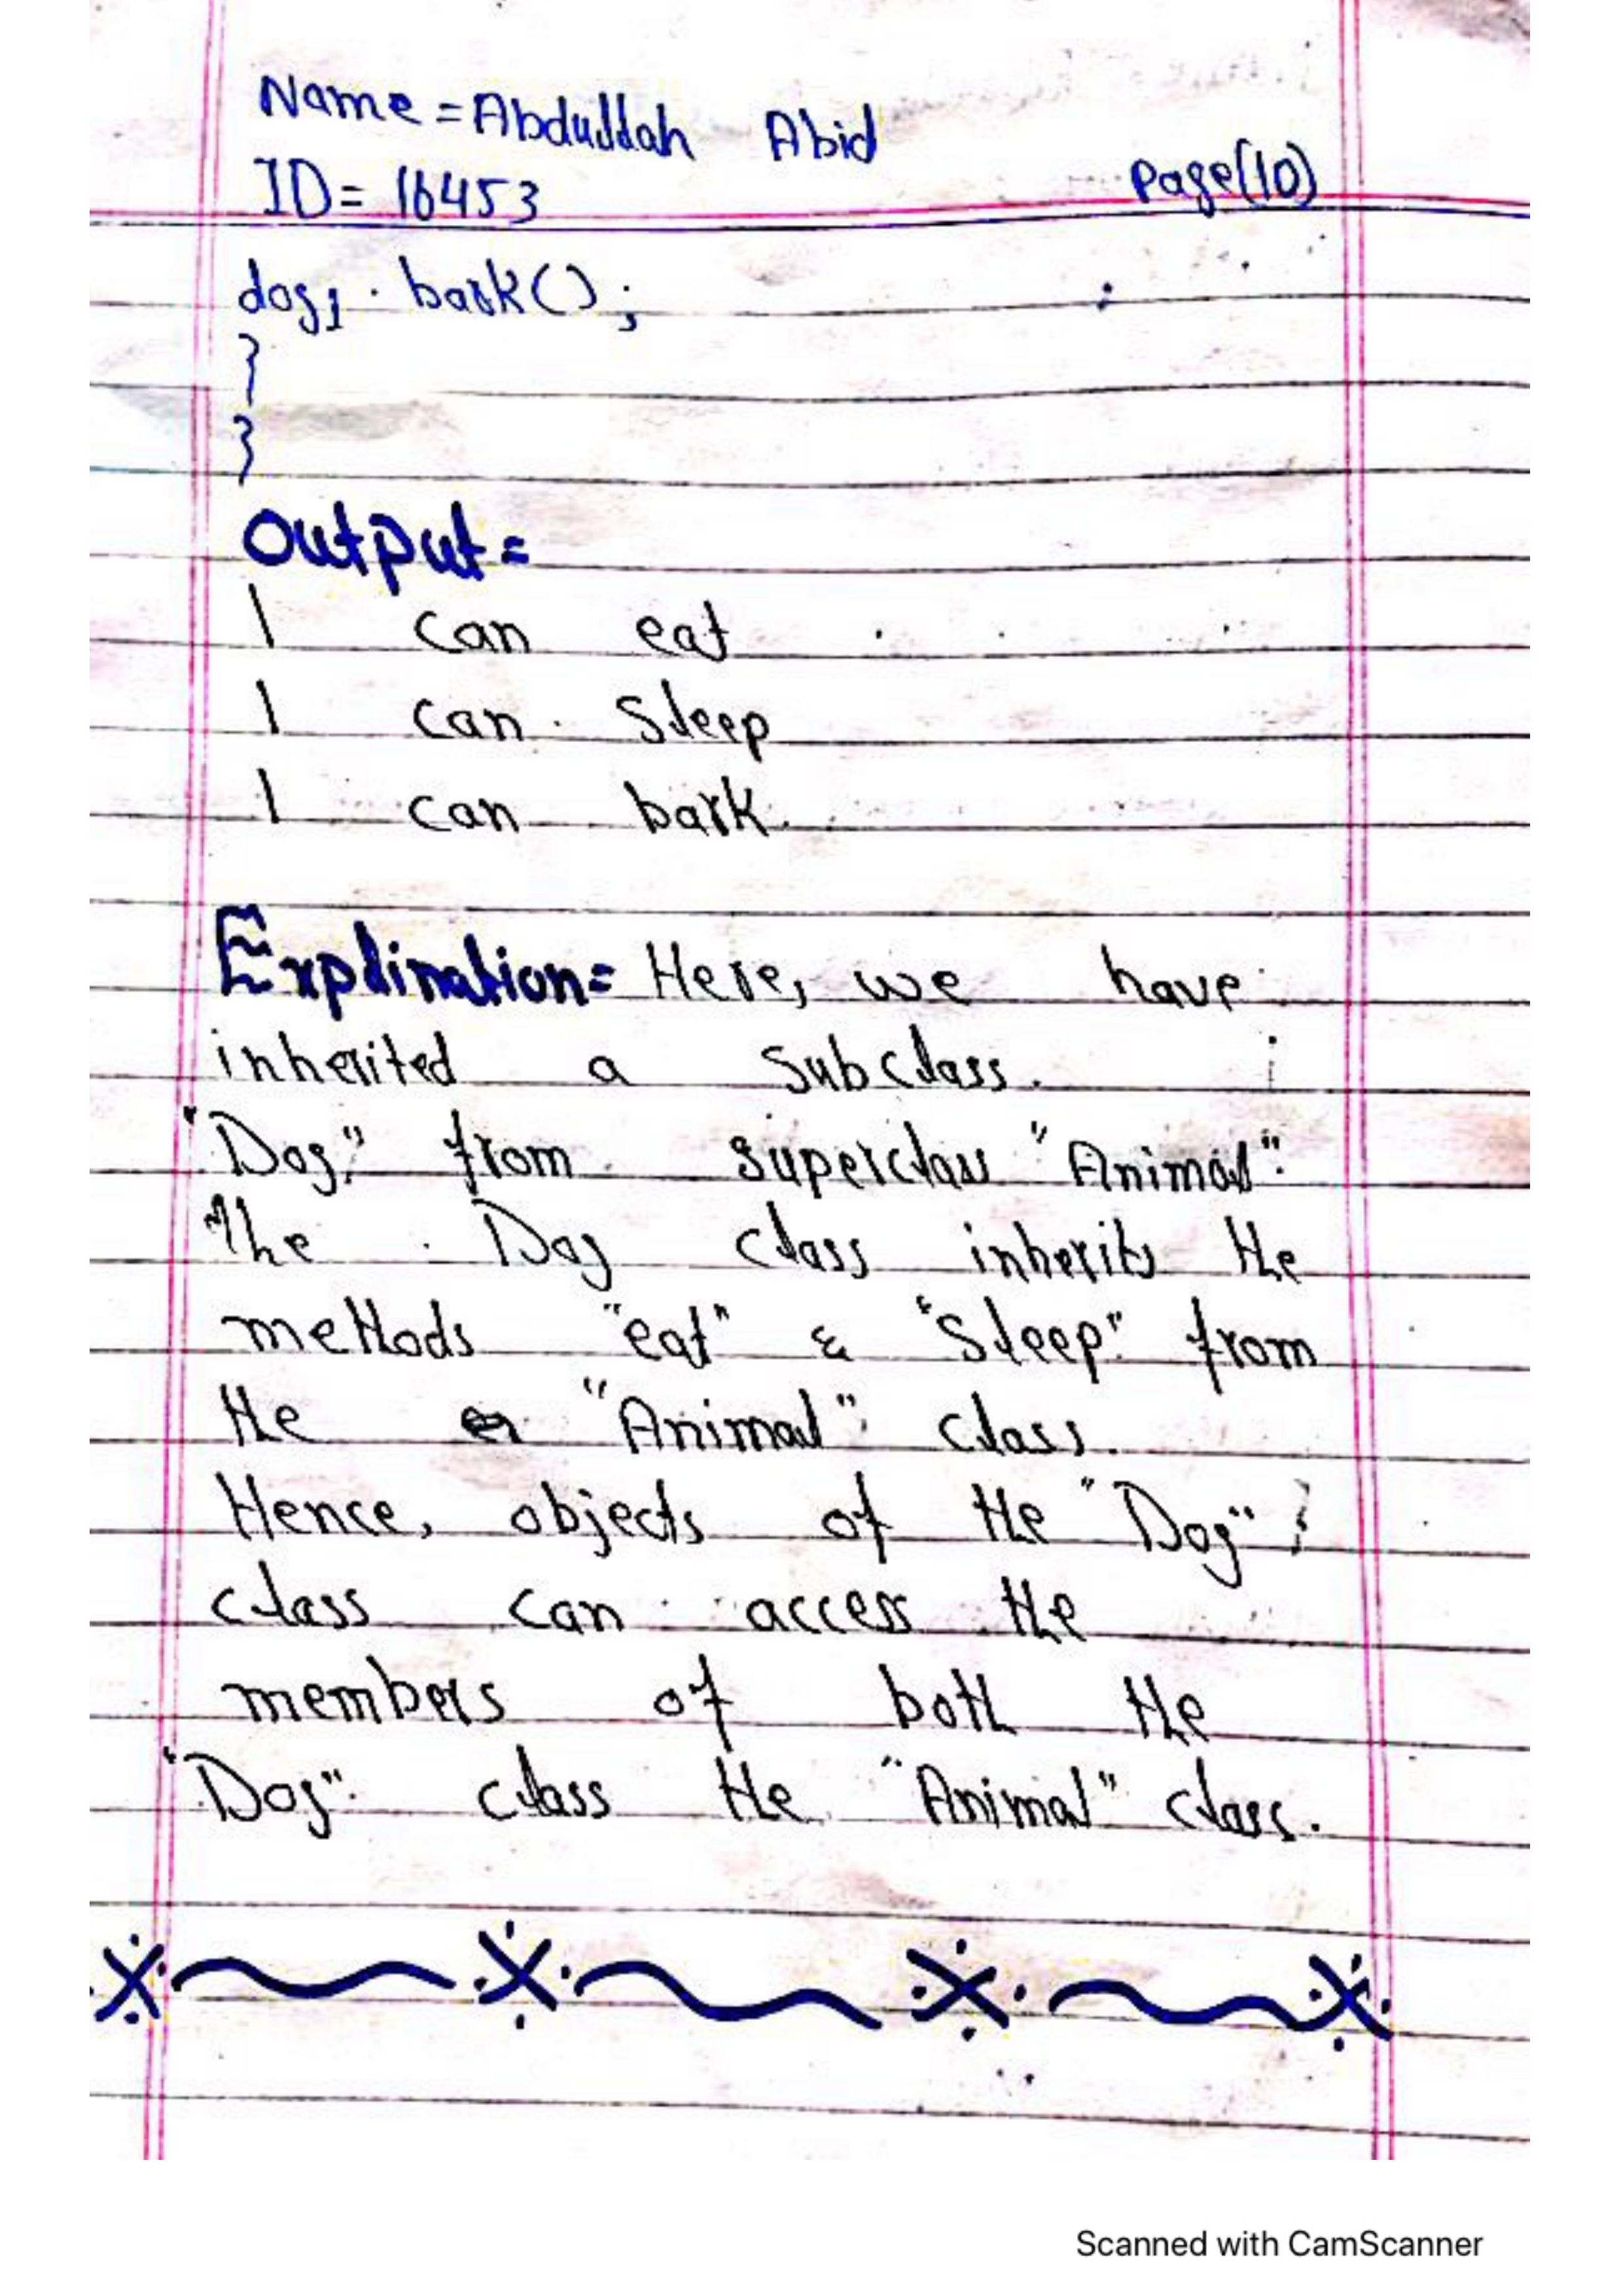 Name = Abdullah Abid
ID = 16453
Page(10)
dog1 . bark();
}
}
Output =
I can eat
I can sleep
I can bark.
Explination = Here, we have
inherited a subclass.
"Dog" from superclass "Animal".
The Dog class inherits the
methods "eat" & "Sleep" from
the "Animal" class.
Hence, objects of the "Dog"
class can access the
members of both the
"Dog" class the "Animal" class.
Scanned with CamScanner